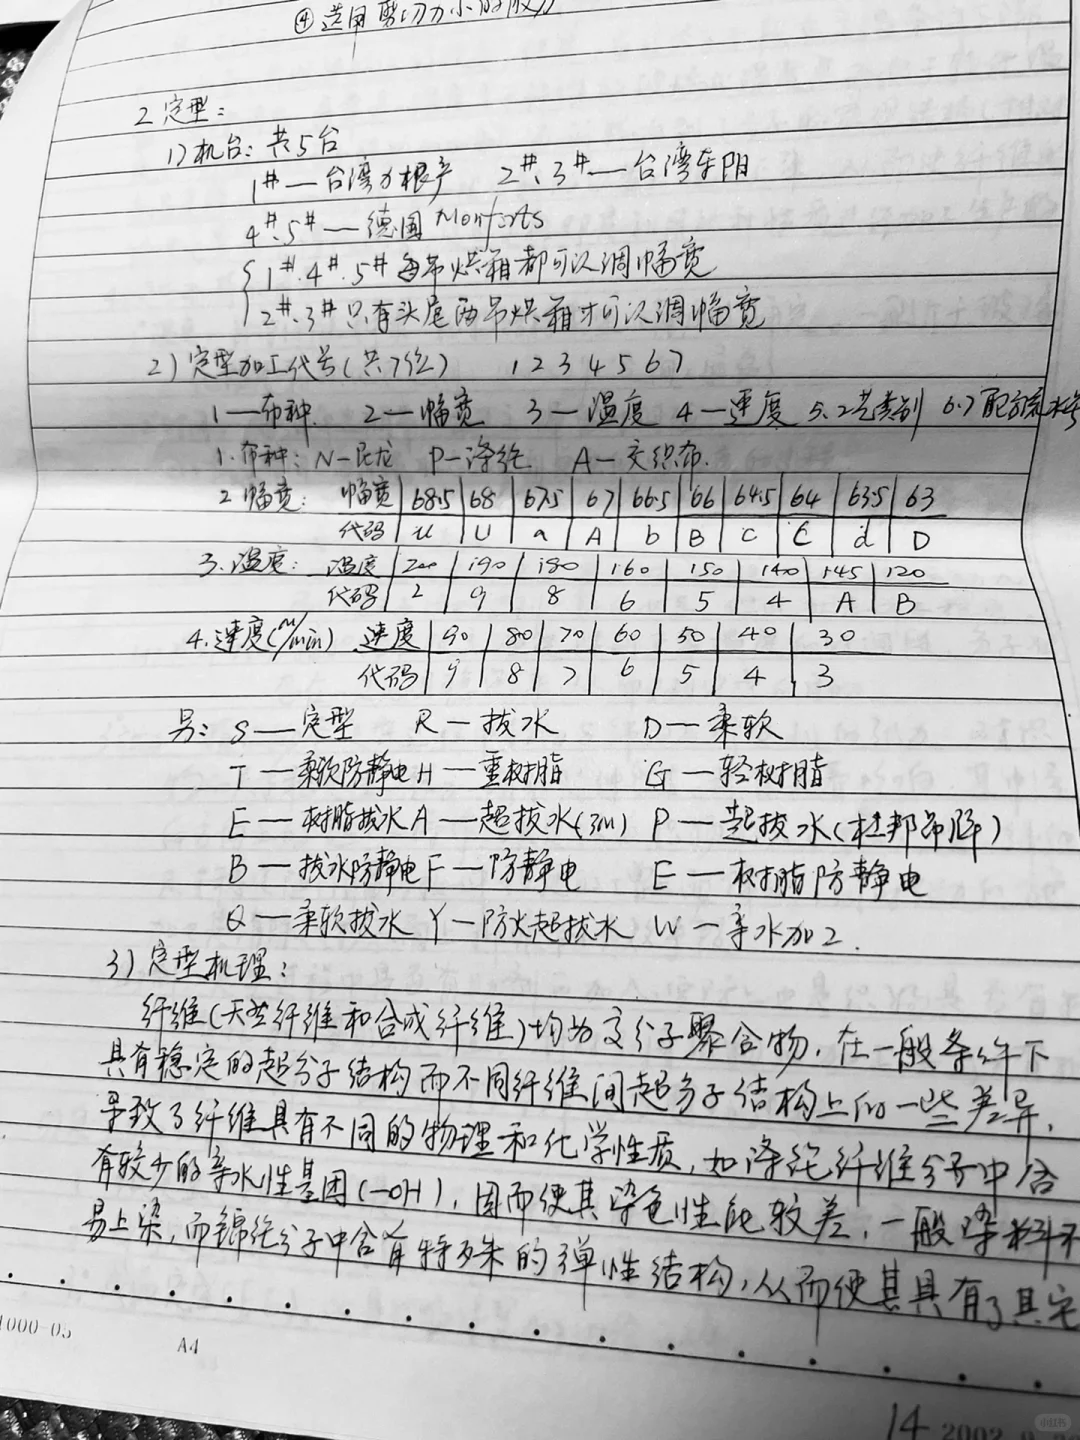 ④选用剪切力小的胶刀
2.定型:
1)机台: 共5台
1#—台湾力根产 2#.3#—台湾东阳
4#.5#—德国Monforts
1#.4#.5#每吊烘箱都可以调幅宽
2#.3#只有头尾两吊烘箱才可以调幅宽
2)定型加工代号(共7位) 1 2 3 4 5 6 7
1—布种. 2—幅宽 3—温度 4—速度 5.工艺类别 6.7配方流水号
1.布种: N-尼龙 P-涤纶 A-交织布.
2.幅宽: 幅宽 68.5 68 67.5 67 66.5 66 64.5 64 63.5 63
代码 u U a A b B c C d D
3.温度: 温度 200 190 180 160 150 140 145 120
代码 2 9 8 6 5 4 A B
4.速度(M/min) 速度 90 80 70 60 50 40 30
代码 9 8 7 6 5 4 3
另: S—定型 R—拔水 D—柔软
T—柔软防静电 H—重树脂 G—轻树脂
E—树脂拔水 A—超拔水(3M) P—超拔水(杜邦吊牌)
B—拔水防静电 F—防静电 E—树脂防静电
Q—柔软拔水 Y—防火超拔水 W—亲水加工.
3)定型机理:
纤维(天然纤维和合成纤维)均为高分子聚合物,在一般条件下
具有稳定的超分子结构而不同纤维间超分子结构上的一些差异,
导致了纤维具有不同的物理和化学性质,如涤纶纤维分子中含
有较少的亲水性基团(-OH),因而使其染色性能较差,一般染料不
易上染,而锦纶分子中含有特殊的弹性结构,从而使其具有了其它
1000-05
A4
14 2002
小红书